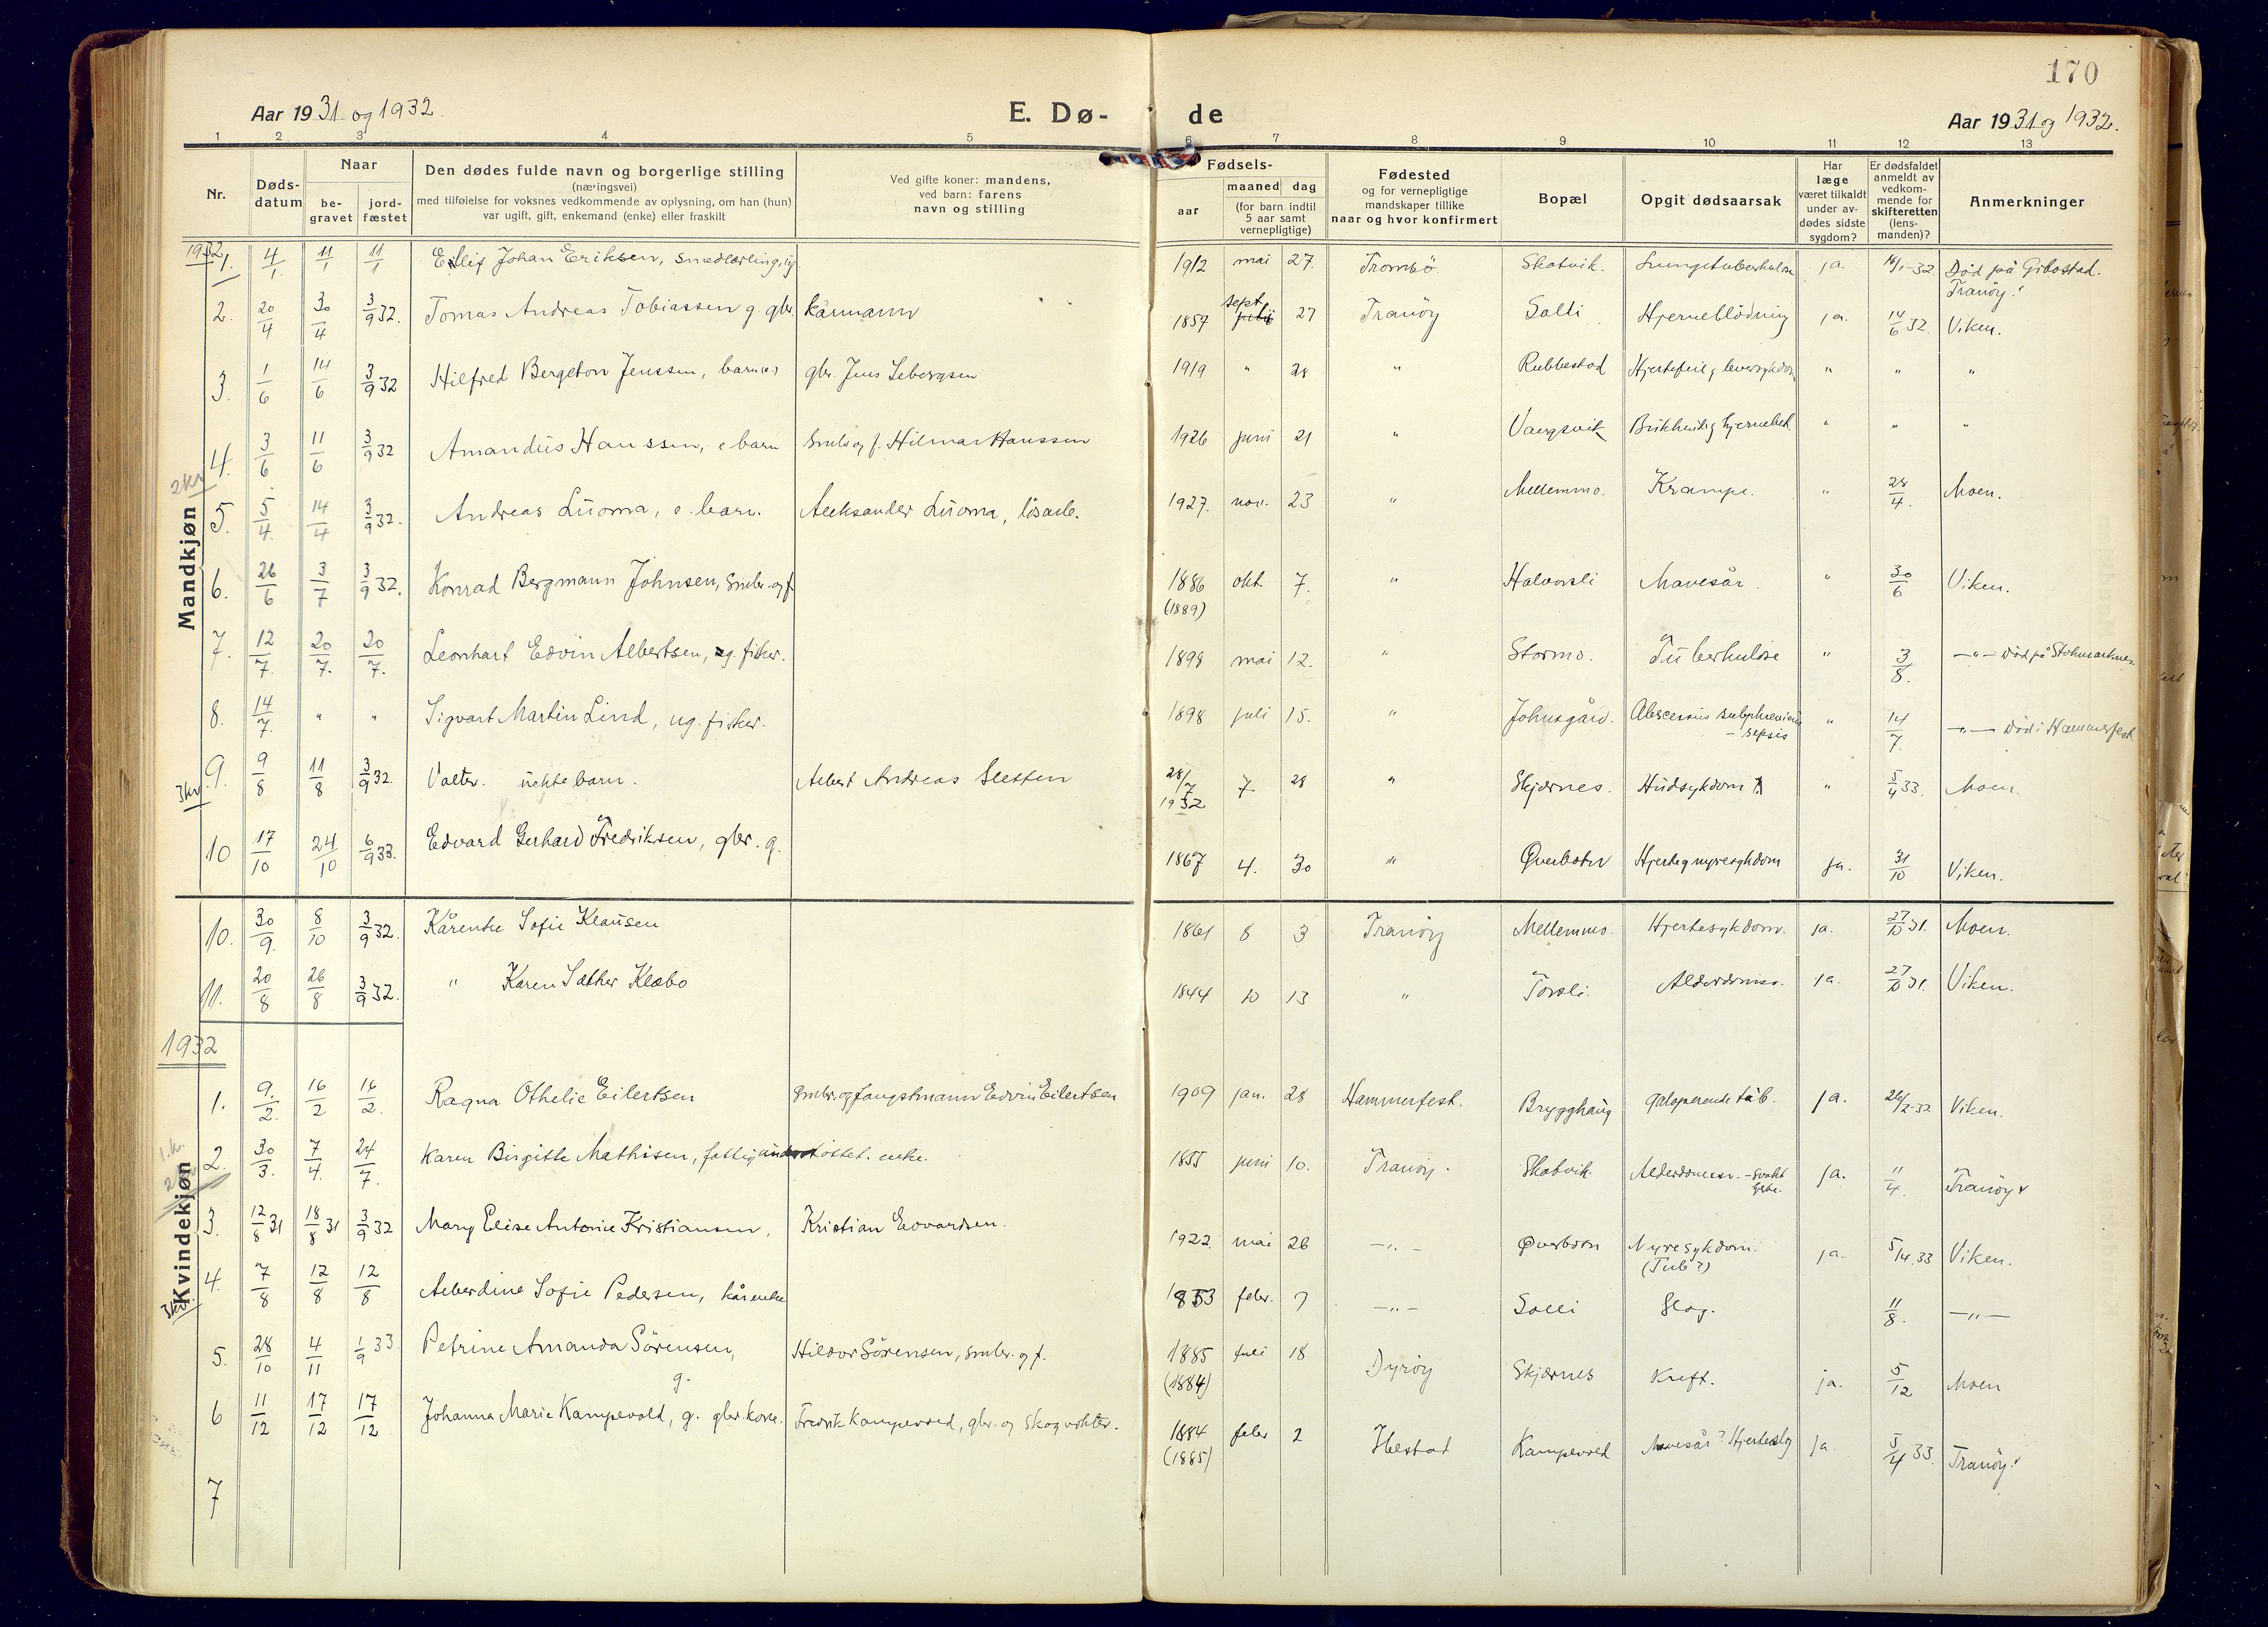 170
Aar 1931 og 1932. E. Dø- de Aar 1931 og 1932.
1 2 3 4 5 6 7 8 9 10 11 12 13
Nr. Døds-datum Naar be-gravet jord-fæstet
Den dødes fulde navn og borgerlige stilling
(næringsvei)
med tilføielse for voksnes vedkommende av oplysning, om han (hun)
var ugift, gift, enkemand (enke) eller fraskilt
Ved gifte koner: mandens,
ved barn: farens
navn og stilling
Fødsels-
aar maaned dag
(for barn indtil
5 aar samt
vernepligtige)
Fødested
og for vernepligtige
mandskaper tillike
naar og hvor konfirmert
Bopæl
Opgit dødsaarsak
Har
læge
været tilkaldt
under av-
dødes sidste
sygdom?
Er dødsfaldet
anmeldt av
vedkom-
mende for
skifteretten
(lens-
manden)?
Anmerkninger
Mandkjøn
1932
1. 4/1. 11/1 11/1 Johan Eriksen, smedlærling, ug. 1912 mai 27. Tromsö. Skatvik. Lungetuberkulose ja. 14/1-32. Död på Gibostad. Tranöy.
2. 20/4 30/4 3/9 32. Tomas Andreas Tobiassen g. gbr. kårmann 1857 sept. 27 Tranöy Solli Hjerneblödning ja. 14/6 32. Viken.
3. 1/6 14/6 3/9 32 Hilfred Bergeton Jenssen, barn gbr. Jens Sebergsen 1919 " 28 " Rubbestad Hjertefeil g leversykdom " " "
4. 3/6 11/6 3/9 32 Amandus Hanssen, e barn Smbr og f. Hilmar Hanssen 1926 juni 21 " Vangsvik " " "
2 kr
5. 5/4. 14/4 3/9 32. Andreas Luoma, e. barn. Aleksander Luoma, lösarb. 1927. nov. 23 " Mellemmo. Krampe. " 28/4. Moen.
6. 26/6 3/7 3/9 32. Konrad Bergmann Johnsen, Smbr. og f. 1886 (1889) okt. 7. " Halvorsli Mavesår. " 30/6 Viken.
7. 12/7. 20/7. 20/7. Leonhart Edvin Albertsen, ug. fisker. 1898 mai 12. " Stormo. Tuberkulose " 3/8. —"— Död på Stokmarknes.
8. 14/7. " " Sigvart Martin Lind, ug. fisker. 1898 juli 15. " Johnsgård. Abscessus subphrenicus - sepsis " 14/7. —"— Död i Hammerfest.
9. 9/8 11/8 3/9 32. Valter. uekte barn. Albert Andreas Sletten 28/7 1932 7. 28 " Skjærnes. Hudsykdom " 5/4 33. Moen.
3 kr
10 17/10 24/10 6/9 33. Edvard Gerhard Fredriksen, gbr. g. 1867 4. 30 " Överbotn Hjerte g nyresykdom ja. 31/10 Viken.
Kvindekjøn
10. 30/9. 8/10 3/9 32. Kårenke Sofie Klausen 1861 8 3 Tranöy Mellemmo. Hjertesykdom. ja. 27/10 31. Moen.
11. 20/8 26/8 3/9 32. " Karen Sæther Klæbo 1844 10 13 " Torsli. Alderdomss. ja. 27/10 31. Viken.
1932
1. 9./2. 16/2 16/2. Ragna Othelie Eilertsen Smbr. og fangstmann Edvin Eilertsen 1909 jan. 28 Hammerfest. Brygghaug galoperende tub. ja. 26/2-32 Viken.
2. 30/3. 7/4. 24/7. Karen Birgitte Mathisen, fattigunderstöttet. enke. 1855 juni 10. Tranöy. Skatvik Alderdomssv. - svakt hjerte. ja. 11/4. Tranöy
3. 12/8 31 18/8 31 3/9 32 Mary Elise Antonie Kristiansen, Kristian Edvardsen. 1922. mai 26 —"— Överbotn Nyresykdom. (Tub?) ja. 5/4.33 Viken.
4. 7/8 12/8 12/8 Alberdine Sofie Pedersen, kårenke 1853 febr. 7 —"— Solli Slag. 11/8. —"—
3 kr.
5. 28/10 4/11 1/9 33. Petrine Amanda Sörensen, g. Hildor Sörensen, smbr. og f. 1885 (1884) juli 18 Dyröy Skjærnes Kreft. ja. 5/12 Moen
6 11/12 17/12 17/12 Johanna Marie Kampevold, g. gbr. kone. Fredrik Kampevold, gbr. og Skogvokter. 1884 (1885) febr 2 Ibestad Kampevold Mavesår? Hjerteslag ja. 5/4 33. Tranöy.
7